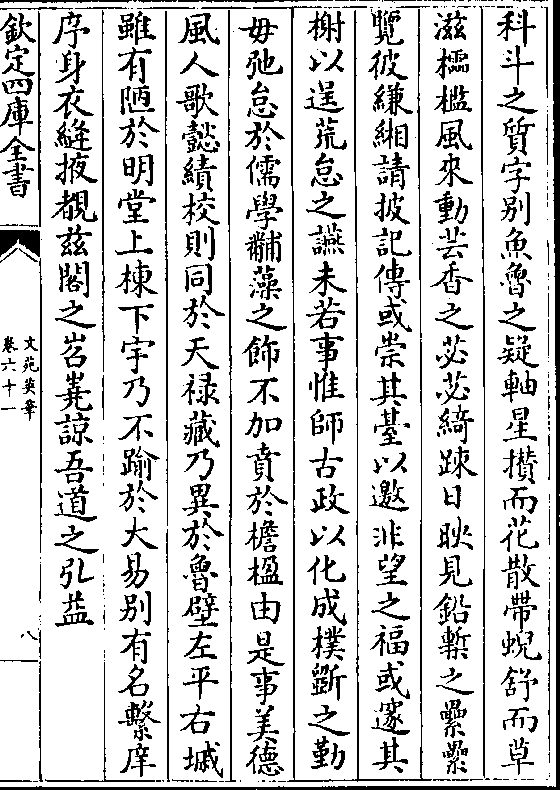 科斗之質字别魚魯之疑軸星攅而花散帶蜺舒而草
滋櫺檻風來動芸香之苾苾綺疎日映見鉛槧之纍纍
覽彼縑緗請披記傳或崇其臺以邀非望之福或邃其
榭以逞荒怠之讌未若事惟師古政以化成樸斵之勤
毋弛怠於儒學黼藻之飾不加賁於檐楹由是事美德
風人歌懿績校則同於天禄藏乃異於魯壁左平右墄
雖有陋於明堂上棟下宇乃不踰於大易别有名繫庠
序身衣縫掖覩兹閣之岧嶤諒吾道之弘益
欽定四庫全書
文苑英華
卷六十一
八